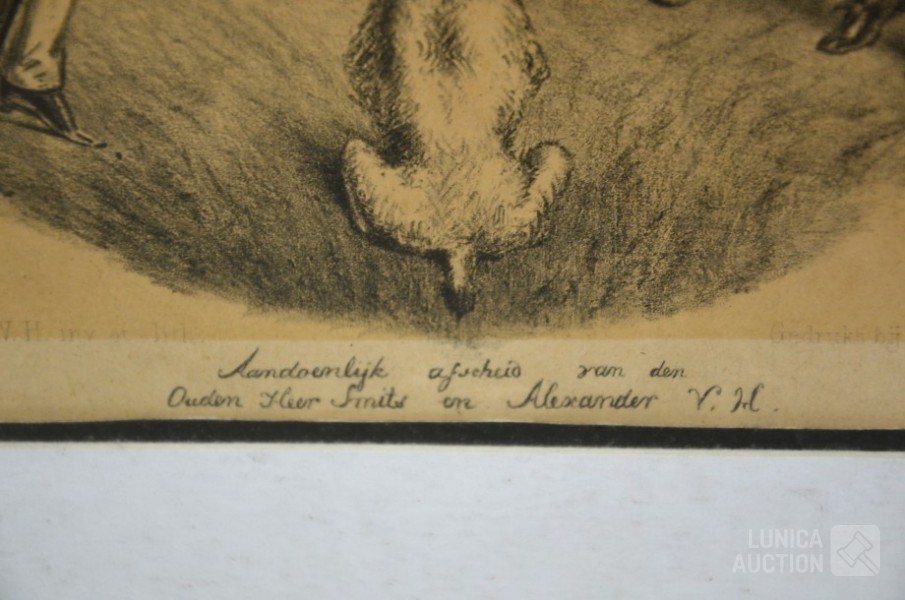 V. H. inv. et lith.
Aandoenlijk afscheid van den
Ouden Heer Smits en Alexander V. H.
LUNICA
AUCTION